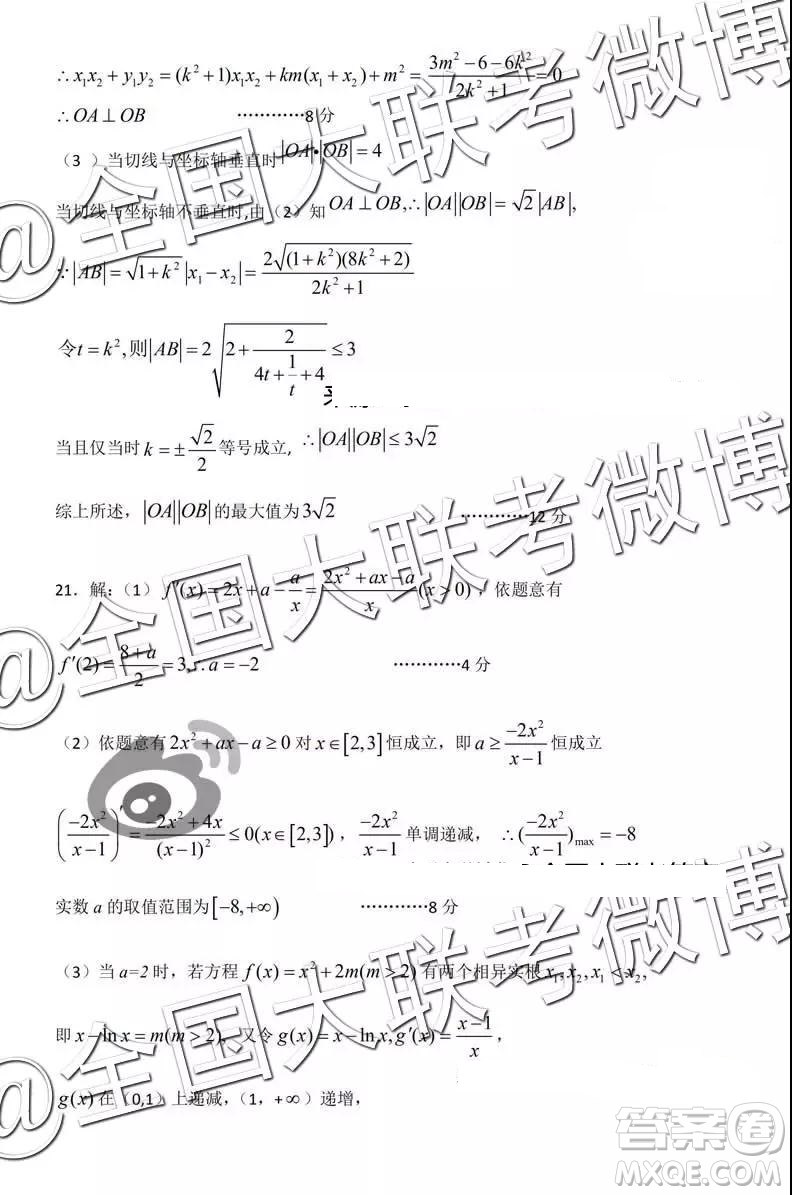 ∴x₁x₂+y₁y₂=(k²+1)x₁x₂+km(x₁+x₂)+m²=(3m²-6-6k²)/(2k²+1)=0
∴OA⊥OB …………8 分
（3 ）当切线与坐标轴垂直时|OA|•|OB|=4
当切线与坐标轴不垂直时,由（2）知OA⊥OB,∴|OA||OB|=√2|AB|,
∵|AB|=√(1+k²)|x₁-x₂|=2√((1+k²)(8k²+2))/(2k²+1)
令t=k²,则|AB|=2√(2+2/(4t+1/t+4))≤3
当且仅当时k=±√2/2等号成立, ∴|OA||OB|≤3√2
综上所述，|OA||OB|的最大值为3√2 …………12 分
21．解：（1） f′(x)=2x+a-a/x=(2x²+ax-a)/x(x>0)，依题意有
f′(2)=(8+a)/2=3,∴a=-2 …………4 分
（2）依题意有2x²+ax-a≥0对x∈[2,3]恒成立，即a≥-2x²/(x-1)恒成立
(-2x²/(x-1))′=(-2x²+4x)/(x-1)²≤0(x∈[2,3])，-2x²/(x-1)单调递减， ∴(-2x²/(x-1))max=-8
实数a的取值范围为[-8,+∞) …………8 分
（3）当a=2时，若方程f(x)=x²+2m(m>2)有两个相异实根x₁,x₂,x₁<x₂,
即x-lnx=m(m>2)，又令g(x)=x-lnx,g′(x)=(x-1)/x，
g(x)在（0,1）上递减，（1，+∞）递增，
@全国大联考微博
@全国大联考微博
@全国大联考微博
答案卷
MXQE.COM